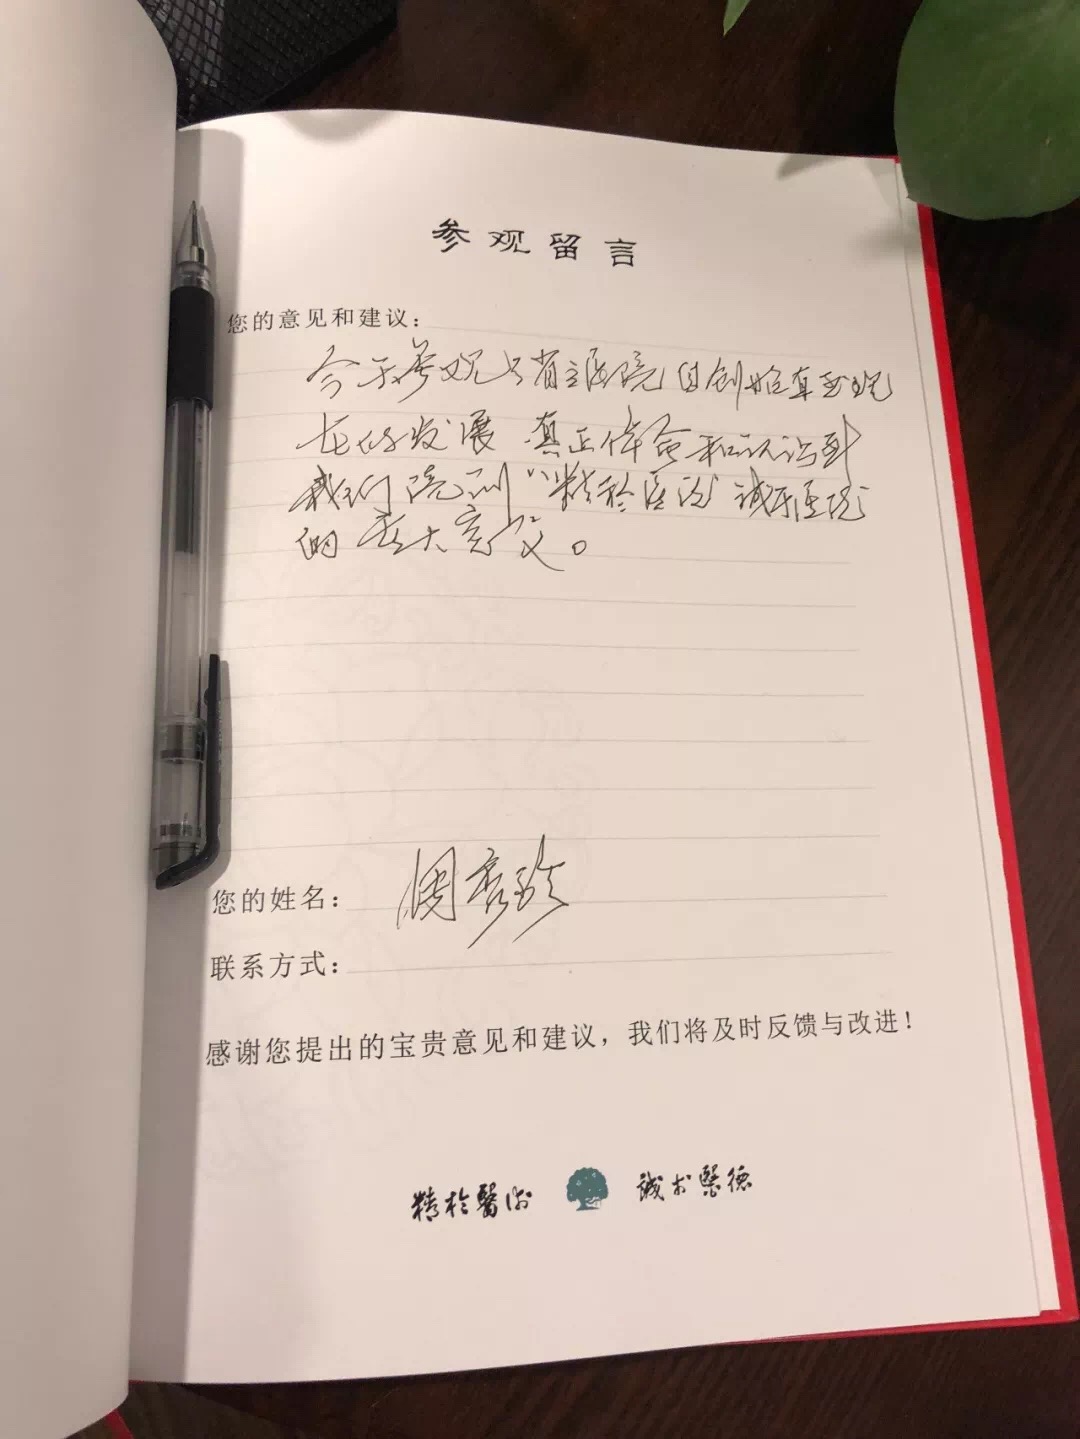 参观留言
您的意见和建议：
今天参观了省立医院自创始直至现
在的发展 真正体会和认识到
我们院训“精于医 诚于医
的重大意义。
您的姓名：周秀珍
联系方式：
感谢您提出的宝贵意见和建议，我们将及时反馈与改进！
精於醫術 誠於醫德